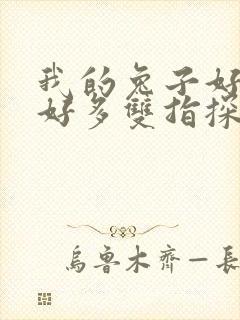 我的兔子好
好多雙指探
烏魯木齊—長